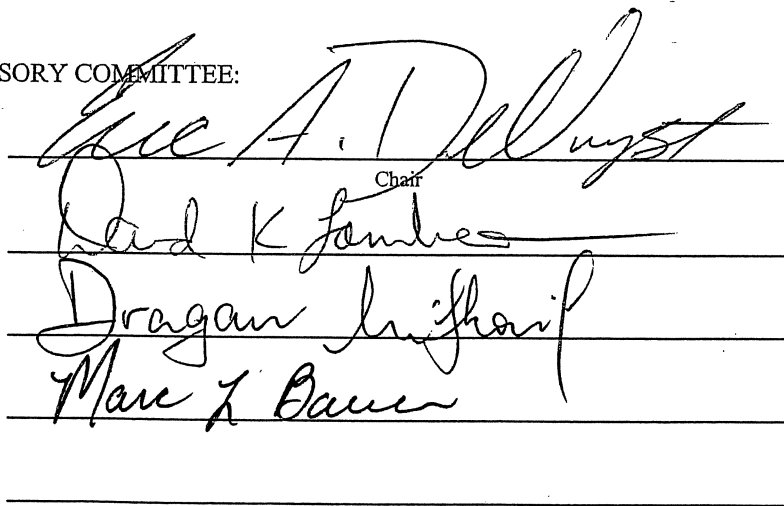 SORY COMMITTEE:
Eric A. DeVuyst
Chair
David K Lambert
Dragan Miljkovic
Marc L Bauer